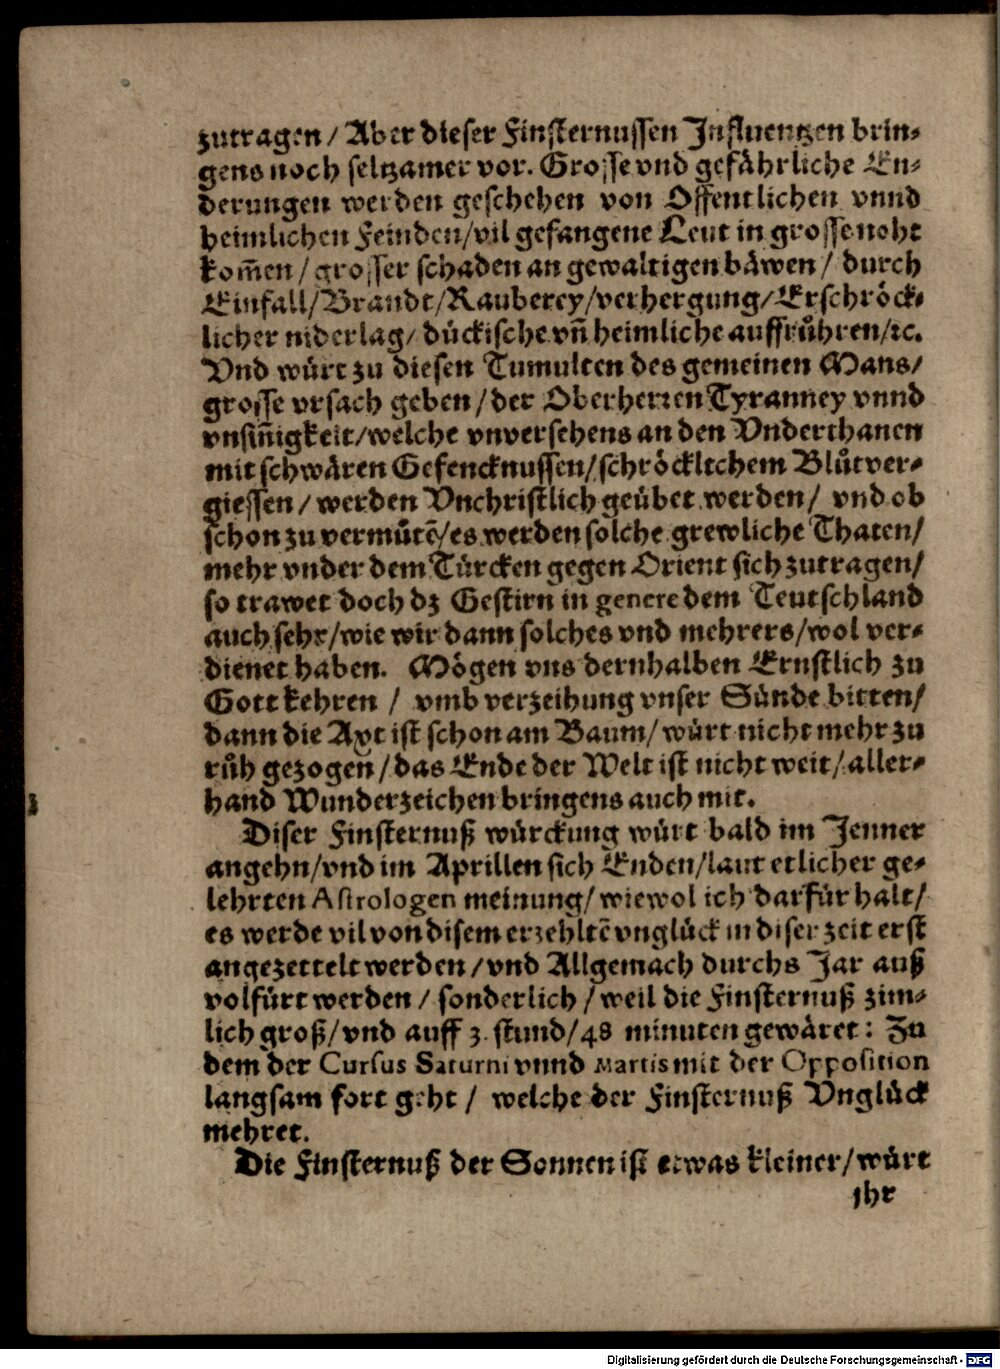 zutragen / Aber dieser Finsternussen Influentzen brin-
gens noch seltzamer vor. Grosse vnd gefährliche En-
derungen werden geschehen von Offentlichen vnnd
heimlichen Feinden/vil gefangene Leut in grosse noht
kom̄en / grosser schaden an gewaltigen bäwen / durch
Einfall/Brandt/Rauberey/verhergung/Erschröck-
licher niderlag/ dückische vn̄ heimliche auffrůhren/ꝛc.
Vnd würt zu diesen Tumulten des gemeinen Mans/
grosse vrsach geben / der Oberherꝛen Tyranney vnnd
vnsin̄igkeit/welche vnversehens an den Vnderthanen
mit schwären Gefencknussen/schröcklichem Blůtver-
giessen / werden Vnchristlich geübet werden / vnd ob
schon zu vermůtē/es werden solche grewliche Thaten/
mehr vnder dem Türcken gegen Orient sich zutragen/
so trawet doch dz Gestirn in genere dem Teutschland
auch sehr/wie wir dann solches vnd mehrers/wol ver-
dienet haben. Mögen vns dernhalben Ernstlich zu
Gott kehren / vmb verzeihung vnser Sünde bitten/
dann die Axt ist schon am Baum/ würt nicht mehr zu
růh gezogen / das Ende der Welt ist nicht weit/ aller-
hand Wunderzeichen bringens auch mit.
Diser Finsternuß würckung würt bald im Jenner
angehn/vnd im Aprillen sich Enden/laut etlicher ge-
lehrten Astrologen meinung/ wiewol ich darfür halt/
es werde vil von disem erzehltē vnglück in diser zeit erst
angezettelt werden / vnd Allgemach durchs Jar auß
volfürt werden / sonderlich / weil die Finsternuß zim-
lich groß/vnd auff 3. stund/48 minuten gewäret: Zu
dem der Cursus Saturni vnnd Martis mit der Opposition
langsam fort geht / welche der Finsternuß Vnglück
mehret.
Die Finsternuß der Sonnen ist etwas kleiner/würt
ihr
Digitalisierung gefördert durch die Deutsche Forschungsgemeinschaft - DFG